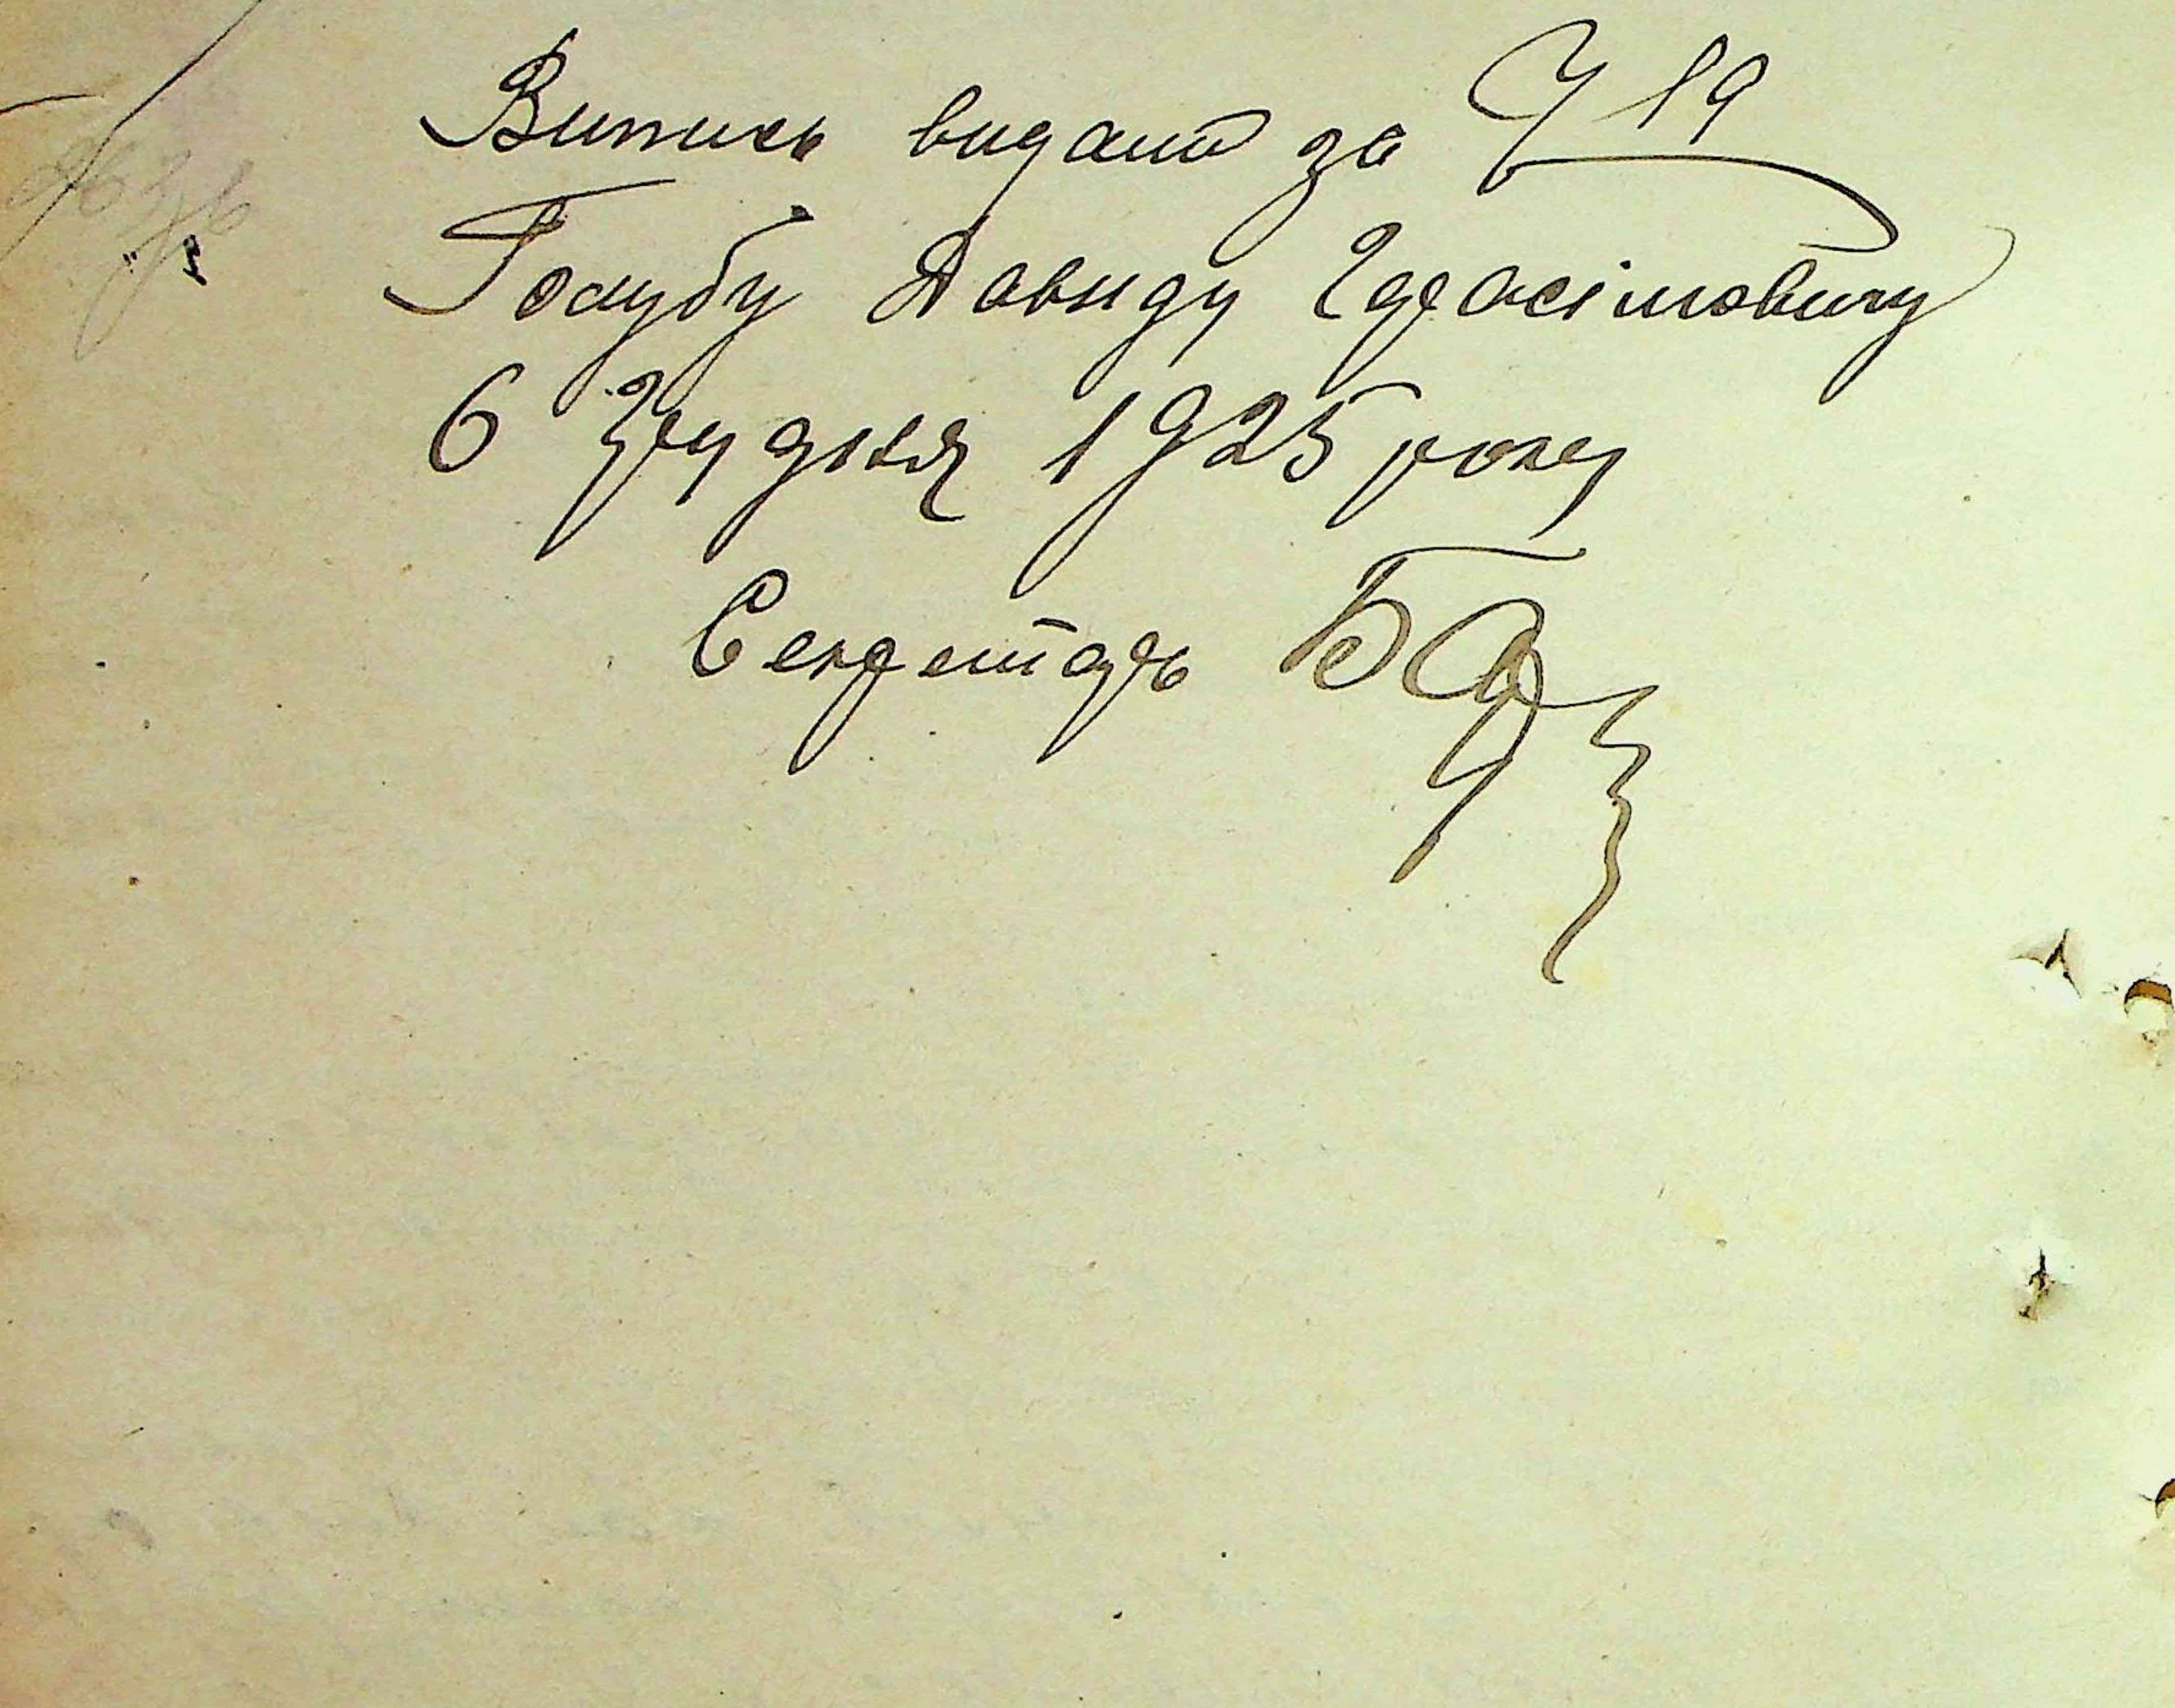 Випись видано за Ч 19
Голубу Давиду Герасімовичу
6 Грудня 1925 року
Секретарь